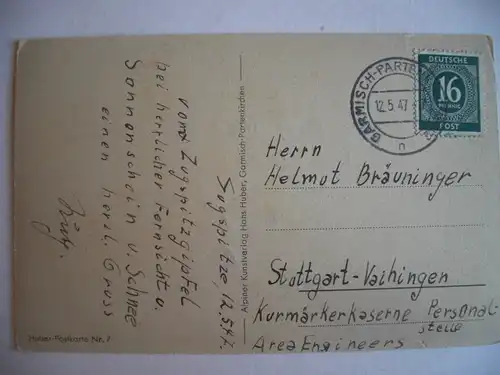 Zugspitze, 12.5.47.
vom Zugspitzgipfel
bei herrlicher Fernsicht u.
Sonnenschein u. Schnee
einen herzl. Gruss
Alpiner Kunstverlag Hans Huber, Garmisch-Partenkirchen
Huber-Postkarte Nr.
GARMISCH-PARTE
12.5.47
n
DEUTSCHE
16
PFENNIG
POST
Herrn
Helmut Bräuninger
Stuttgart-Vaihingen
Kurmärkerkaserne Personal-
stelle
Area Engineers